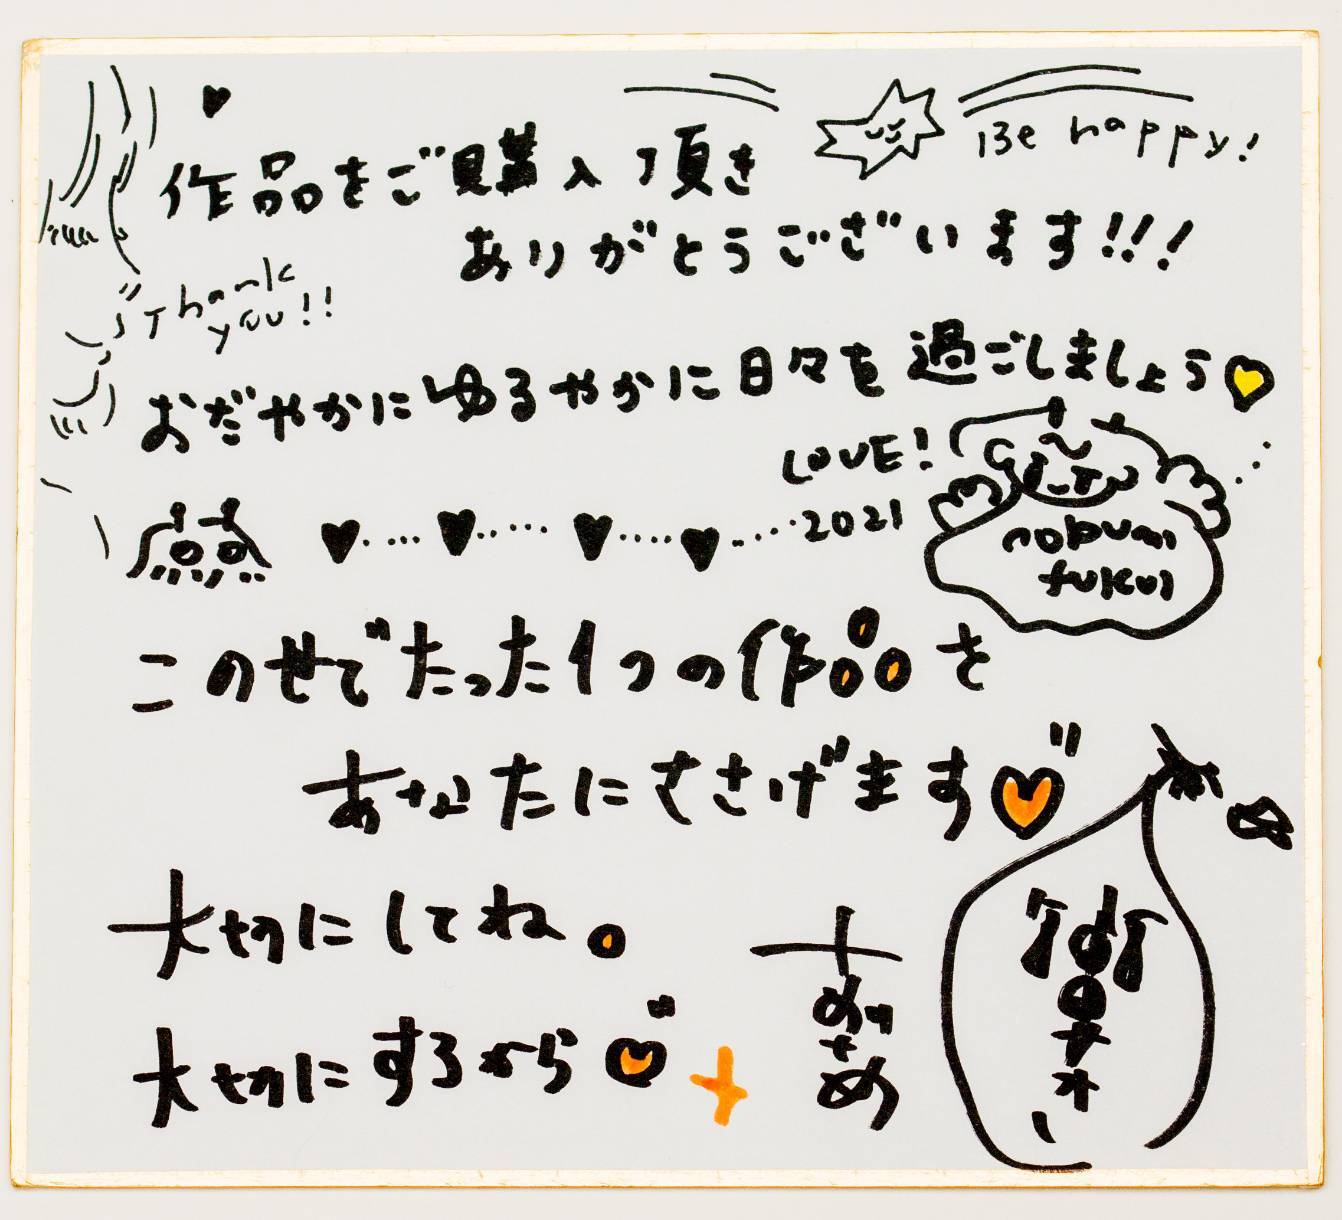 作品をご購入頂き
Be happy!
ありがとうございます!!!
Thank
you!!
おだやかにゆるやかに日々を過ごしましょう
LOVE!
2021
nobumi
fukui
このせでたった1つの作品を
あなたにささげます
大切にしてね。
大切にするから